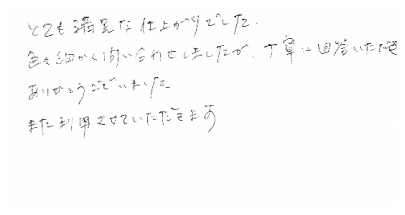 とても満足な仕上がりでした.
色々細かく問い合わせしましたが、丁寧に回答いただき
ありがとうございました
また利用させていただきます